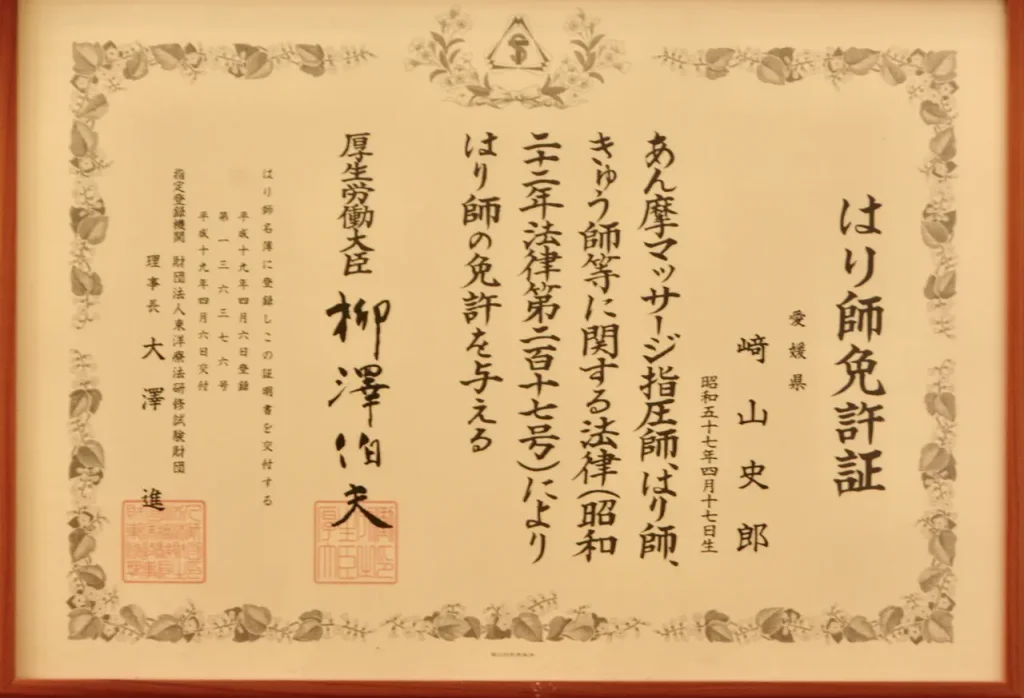 はり師免許証
愛媛県
崎山史郎
昭和五十七年四月十七日生
あん摩マッサージ指圧師、はり師、
きゅう師等に関する法律(昭和
二十二年法律第二百十七号)により
はり師の免許を与える
厚生労働大臣 柳澤伯夫
はり師名簿に登録しこの証明書を交付する
平成十九年四月六日登録
第一三六三七六号
平成十九年四月六日交付
指定登録機関 財団法人東洋療法研修試験財団
理事長 大澤進